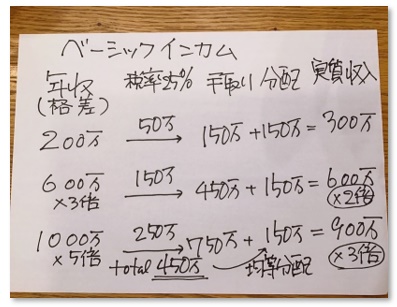 ベーシックインカム
年収 税率25% 手取り 分配 実質収入
(格差)
200万 50万 → 150万+150万=300万
600万 150万 → 450万+150万=600万
×3倍 ×2倍
1000万 250万 → 750万+150万=900万
×5倍 total 450万 均等分配 ×3倍